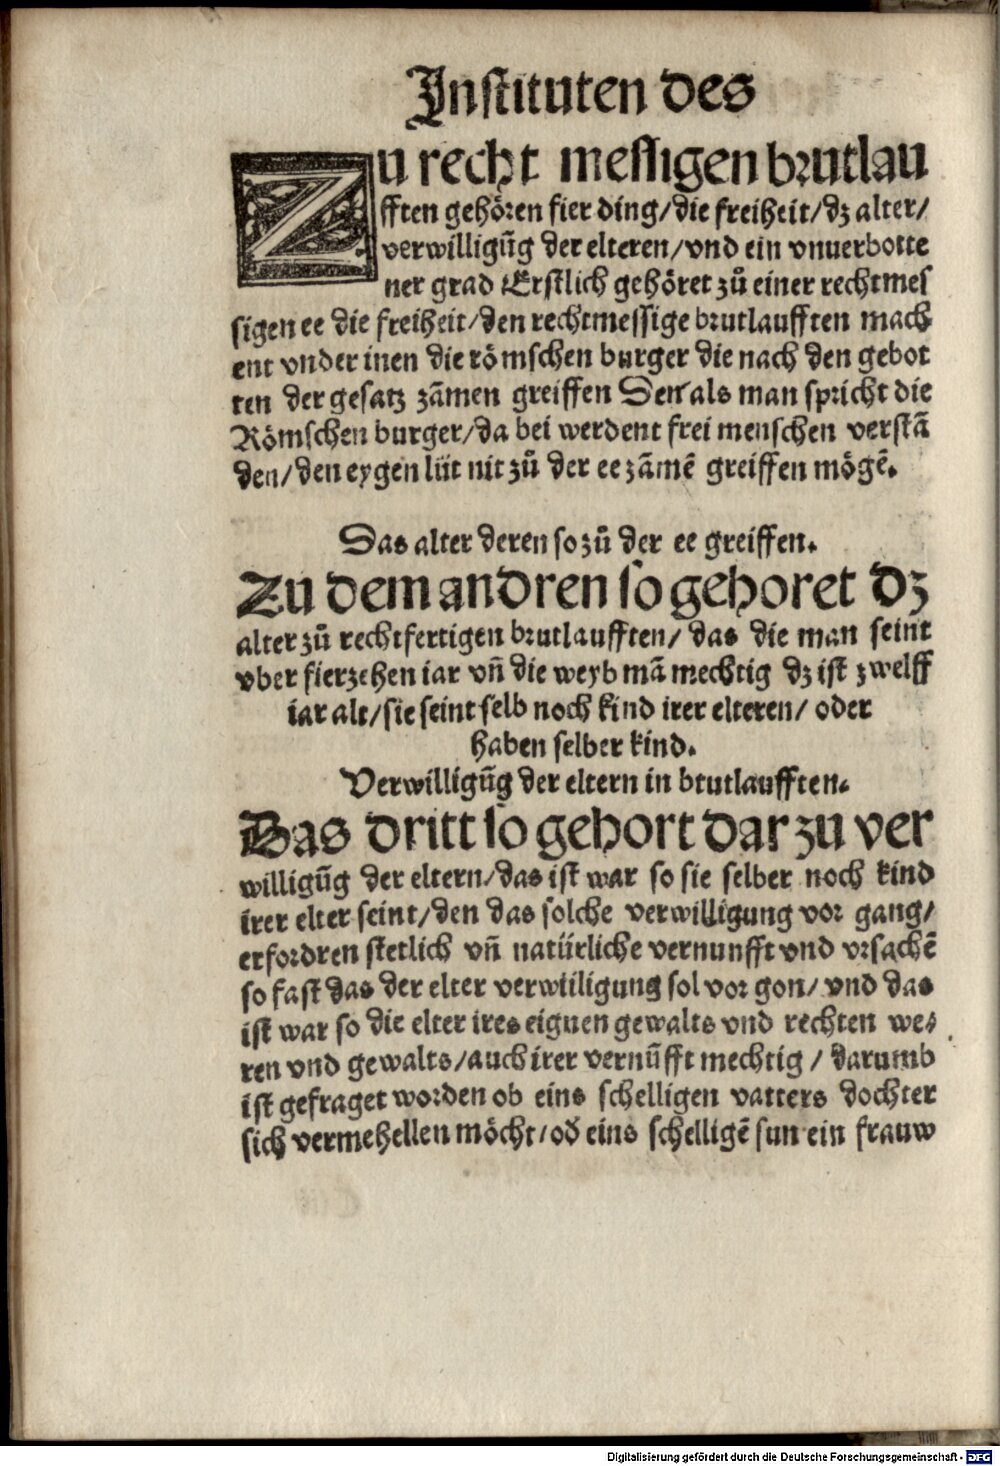 Instituten des
Zu recht messigen brutlau
fften gehören fier ding/die freiheit/dz alter/
verwilligūg der elteren/vnd ein vnuerbotte
ner grad Erstlich gehöret zů einer rechtmes
sigen ee die freiheit/den rechtmessige brutlaufften mach
ent vnder inen die römschen burger die nach den gebot
ten der gesatz zāmen greiffen Den als man spricht die
Römschen burger/da bei werdent frei menschen verstā
den/den eygen lüt nit zů der ee zāmē greiffen mögē.
Das alter deren so zů der ee greiffen.
Zu dem andren so gehoret dz
alter zů rechtfertigen brutlaufften/ das die man seint
vber fierzehen iar vñ die weyb mā mechtig dz ist zwelff
iar alt/sie seint selb noch kind irer elteren/ oder
haben selber kind.
Verwilligūg der eltern in brutlaufften.
Das dritt so gehort dar zu ver
willigūg der eltern/das ist war so sie selber noch kind
irer elter seint/den das solche verwilligung vor gang/
erfordren stetlich vñ natürliche vernunfft vnd vrsachē
so fast das der elter verwiiligung sol vor gon/ vnd das
ist war so die elter ires eignen gewalts vnd rechten we⸗
ren vnd gewalts/auch irer vernūfft mechtig / darumb
ist gefraget worden ob eins schelligen vatters dochter
sich vermehellen möcht/od̕ eins schelligē sun ein frauw
Digitalisierung gefördert durch die Deutsche Forschungsgemeinschaft - DFG